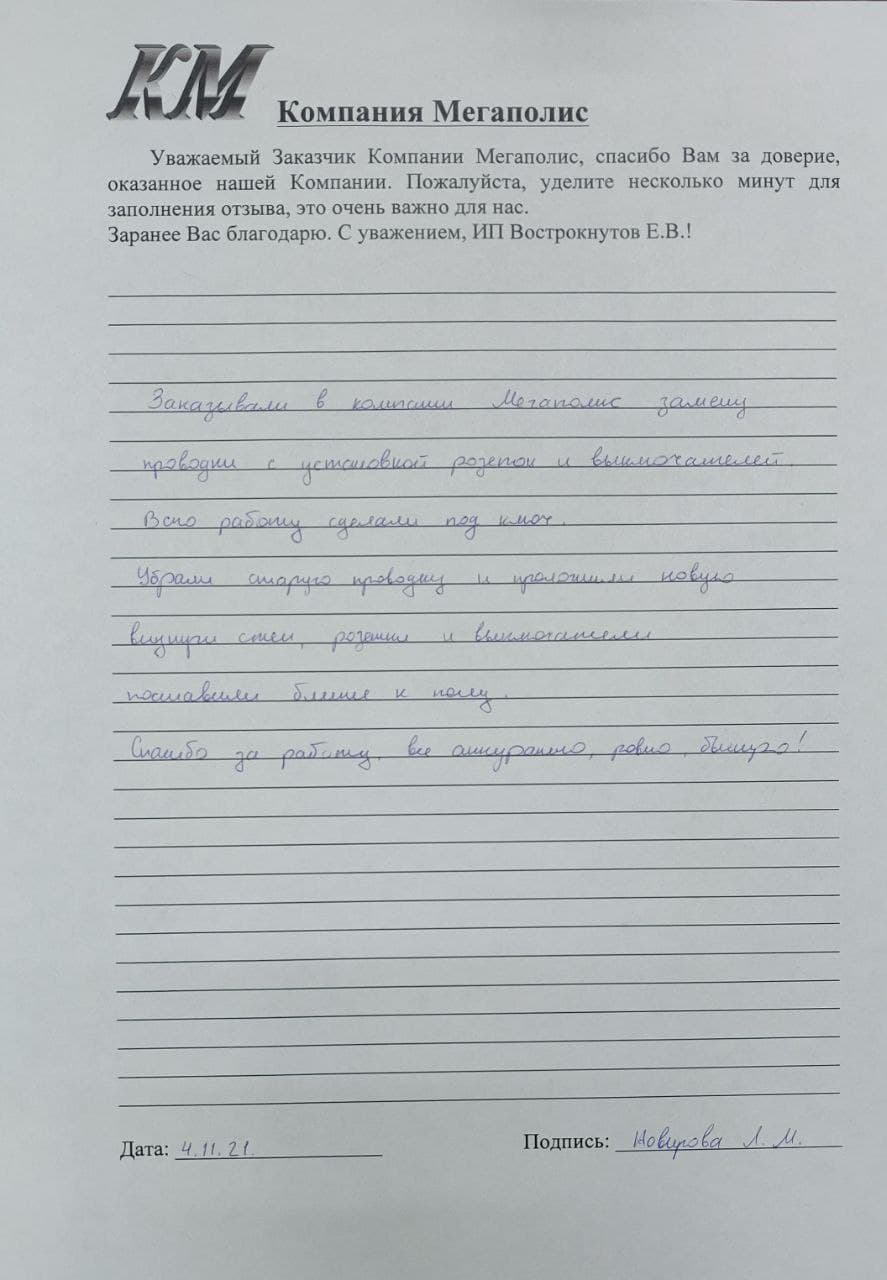 КМ
Компания Мегаполис
Уважаемый Заказчик Компании Мегаполис, спасибо Вам за доверие,
оказанное нашей Компании. Пожалуйста, уделите несколько минут для
заполнения отзыва, это очень важно для нас.
Заранее Вас благодарю. С уважением, ИП Вострокнутов Е.В.!
Заказывали в компании Мегаполис замену
проводки с установкой розеток и выключателей.
Всю работу сделали под ключ.
Убрали старую проводку и проложили новую
внутри стен, розетки и выключатели
поставили ближе к полу.
Спасибо за работу, все аккуратно, ровно, быстро!
Дата: 4.11.21.
Подпись: Л. М.